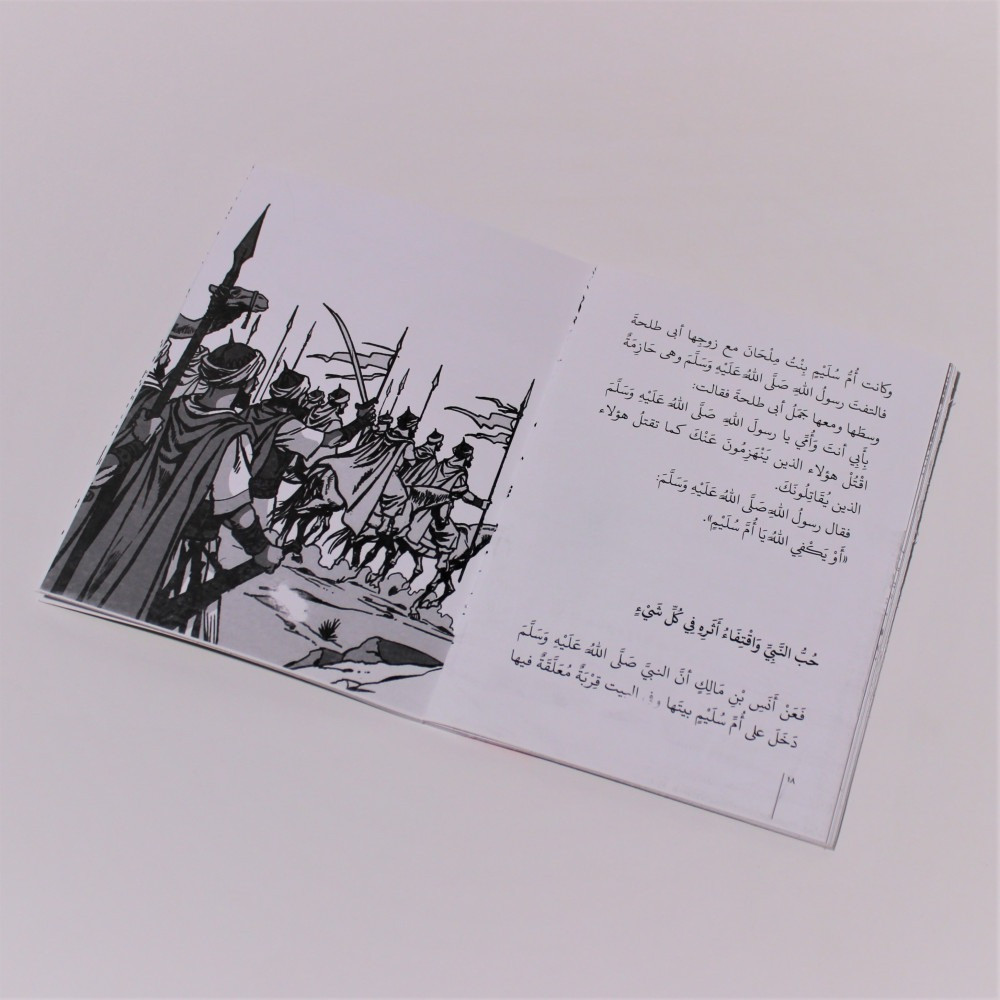 وكانت أُمُّ سُلَيْمٍ بِنْتُ مِلْحَانَ مع زوجِها أبى طلحةَ
فالتفتَ رسولُ اللهِ صَلَّى اللهُ عَلَيْهِ وَسَلَّمَ وهى حَازِمَةٌ
وسطَها ومعها جَمَلُ أبى طلحةَ فقالت:
بِأَبِي أنتَ وَأُمِّي يا رسولَ اللهِ صَلَّى اللهُ عَلَيْهِ وَسَلَّمَ
اقْتُلْ هؤلاء الذين يَنْهَزِمُونَ عَنْكَ كما تقتلُ هؤلاء
الذين يُقَاتِلُونَكَ.
فقال رسولُ اللهِ صَلَّى اللهُ عَلَيْهِ وَسَلَّمَ:
«أَوْ يَكْفِي اللهُ يَا أُمَّ سُلَيْمٍ».
حُبُّ النَّبِيِّ وَاقْتِفَاءُ أَثَرِهِ فِي كُلِّ شَيْءٍ
فَعَنْ أَنَسِ بْنِ مَالِكٍ أنَّ النبيَّ صَلَّى اللهُ عَلَيْهِ وَسَلَّمَ
دَخَلَ على أُمِّ سُلَيْمٍ بيتَها وفى البيت قِرْبَةٌ مُعَلَّقَةٌ فيها
١٨